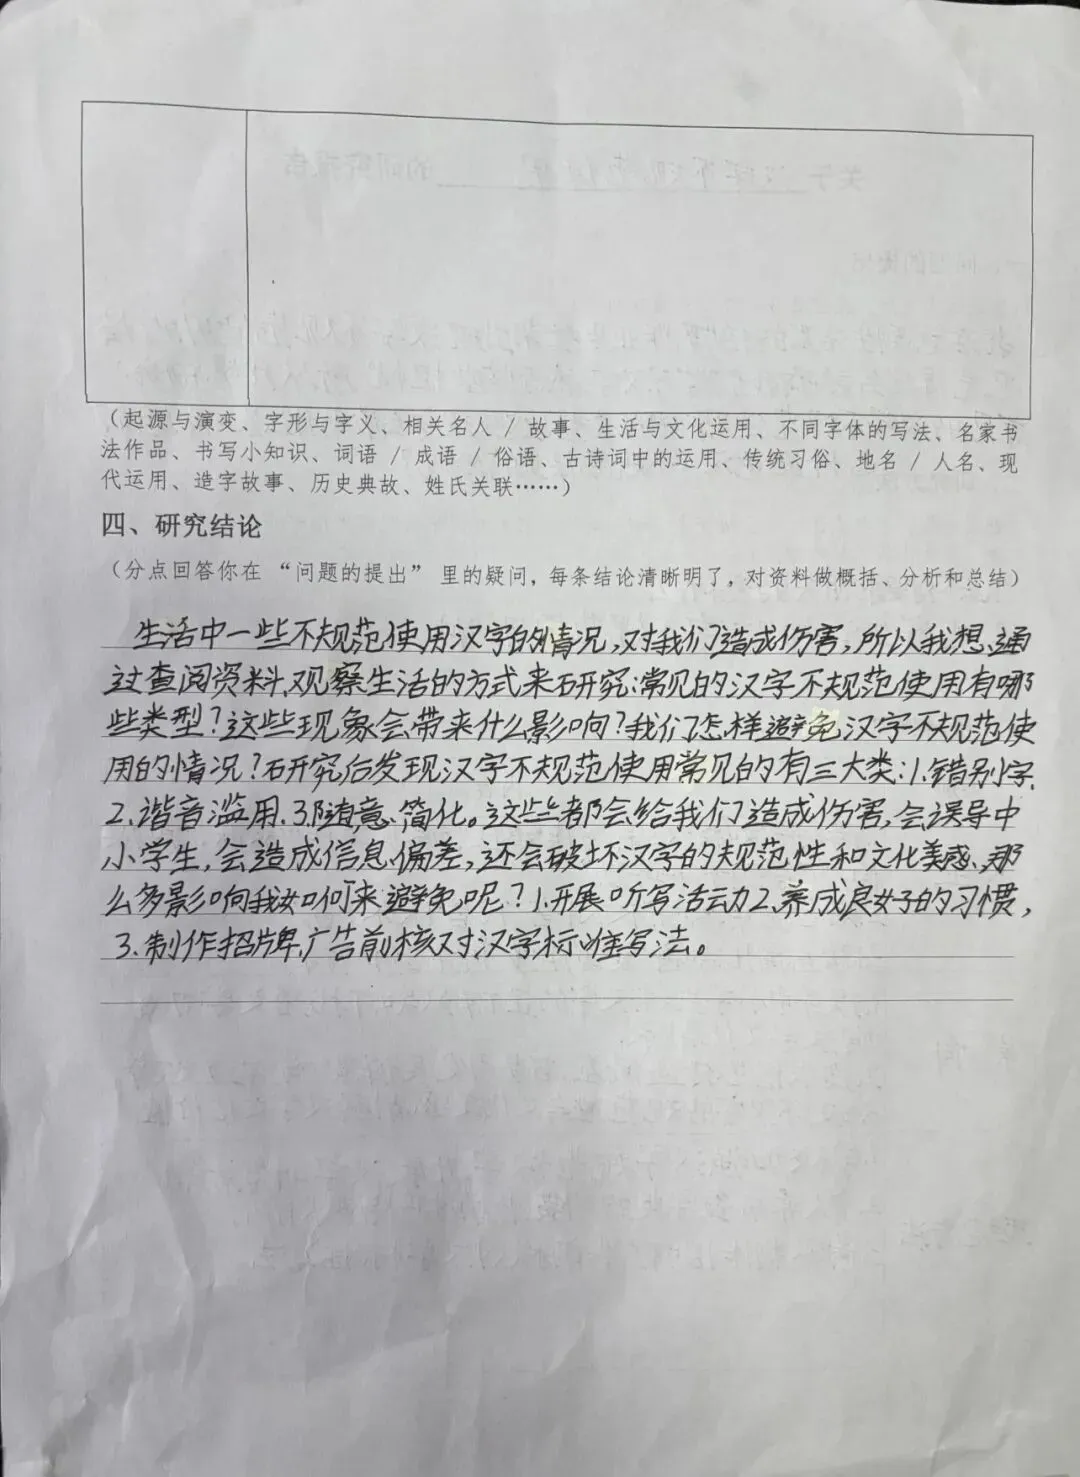 （起源与演变、字形与字义、相关名人 / 故事、生活与文化运用、不同字体的写法、名家书
法作品、书写小知识、词语 / 成语 / 俗语、古诗词中的运用、传统习俗、地名 / 人名、现
代运用、造字故事、历史典故、姓氏关联……）
四、研究结论
（分点回答你在“问题的提出”里的疑问，每条结论清晰明了，对资料做概括、分析和总结）
生活中一些不规范使用汉字的情况，对我们造成伤害，所以我想通
过查阅资料、观察生活的方式来研究：常见的汉字不规范使用有哪
些类型？这些现象会带来什么影响？我们怎样避免汉字不规范使
用的情况？研究后发现汉字不规范使用常见的有三大类：1.错别字.
2.谐音滥用.3.随意简化。这些都会给我们造成伤害，会误导中
小学生，会造成信息偏差，还会破坏汉字的规范性和文化美感、那
么多影响我如何来避免呢？1.开展听写活动2.养成良好的习惯，
3.制作招牌、广告前核对汉字标准写法。